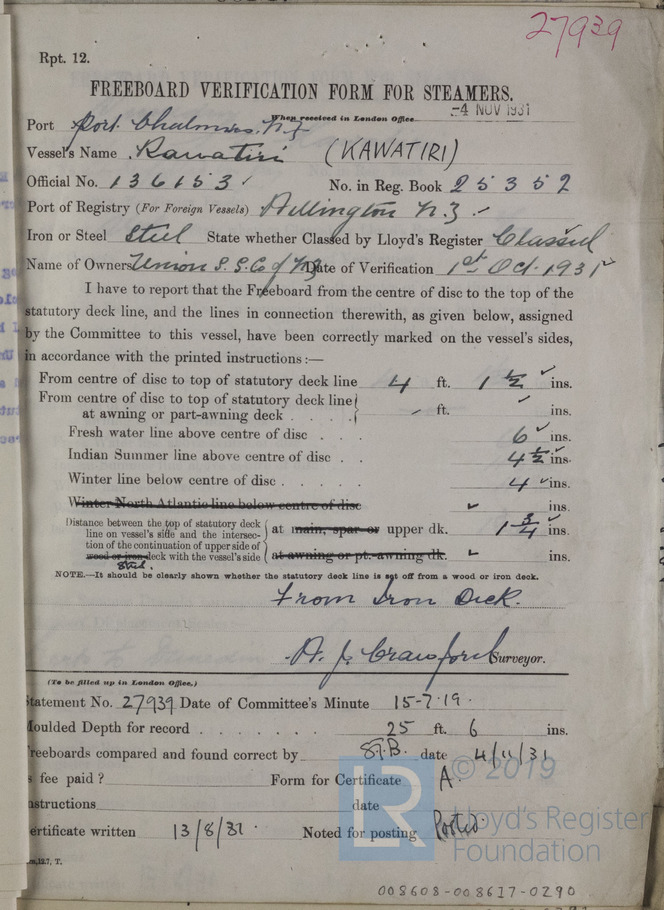 27939
Rpt. 12.
FREEBOARD VERIFICATION FORM FOR STEAMERS.
When received in London Office -4 NOV 1931
Port Port Chalmers, N.Z
Vessel's Name Kawatiri (KAWATIRI)
Official No. 136153 No. in Reg. Book 25352
Port of Registry (For Foreign Vessels) Wellington N.Z
Iron or Steel Steel State whether Classed by Lloyd's Register Classed
Name of Owners Union S.S. Co of N.Z Date of Verification 1st Oct. 1931
I have to report that the Freeboard from the centre of disc to the top of the
statutory deck line, and the lines in connection therewith, as given below, assigned
by the Committee to this vessel, have been correctly marked on the vessel's sides,
in accordance with the printed instructions:—
From centre of disc to top of statutory deck line 4 ft. 1 1/2 ins.
From centre of disc to top of statutory deck line
at awning or part-awning deck . . . . - ft. ins.
Fresh water line above centre of disc . . . 6 ins.
Indian Summer line above centre of disc . . 4 1/2 ins.
Winter line below centre of disc . . . . . 4 ins.
Winter North Atlantic line below centre of disc ins.
Distance between the top of statutory deck
line on vessel's side and the intersec-
tion of the continuation of upper side of
wood or iron deck with the vessel's side
Steel.
at main, spar or upper dk. 1 3/4 ins.
at awning or pt.-awning dk. ins.
NOTE.—It should be clearly shown whether the statutory deck line is set off from a wood or iron deck.
From Iron Deck.
A. J. Crawford Surveyor.
(To be filled up in London Office.)
Statement No. 27939 Date of Committee's Minute 15-7-19.
Moulded Depth for record . . . . . . . 25 ft. 6 ins.
Freeboards compared and found correct by date 4/11/31
Is fee paid? Form for Certificate A.
Instructions date
Certificate written 13/8/31 Noted for posting Posted
12.7, T.
© 2019
LR
Lloyd's Register
Foundation
008608-008617-0290